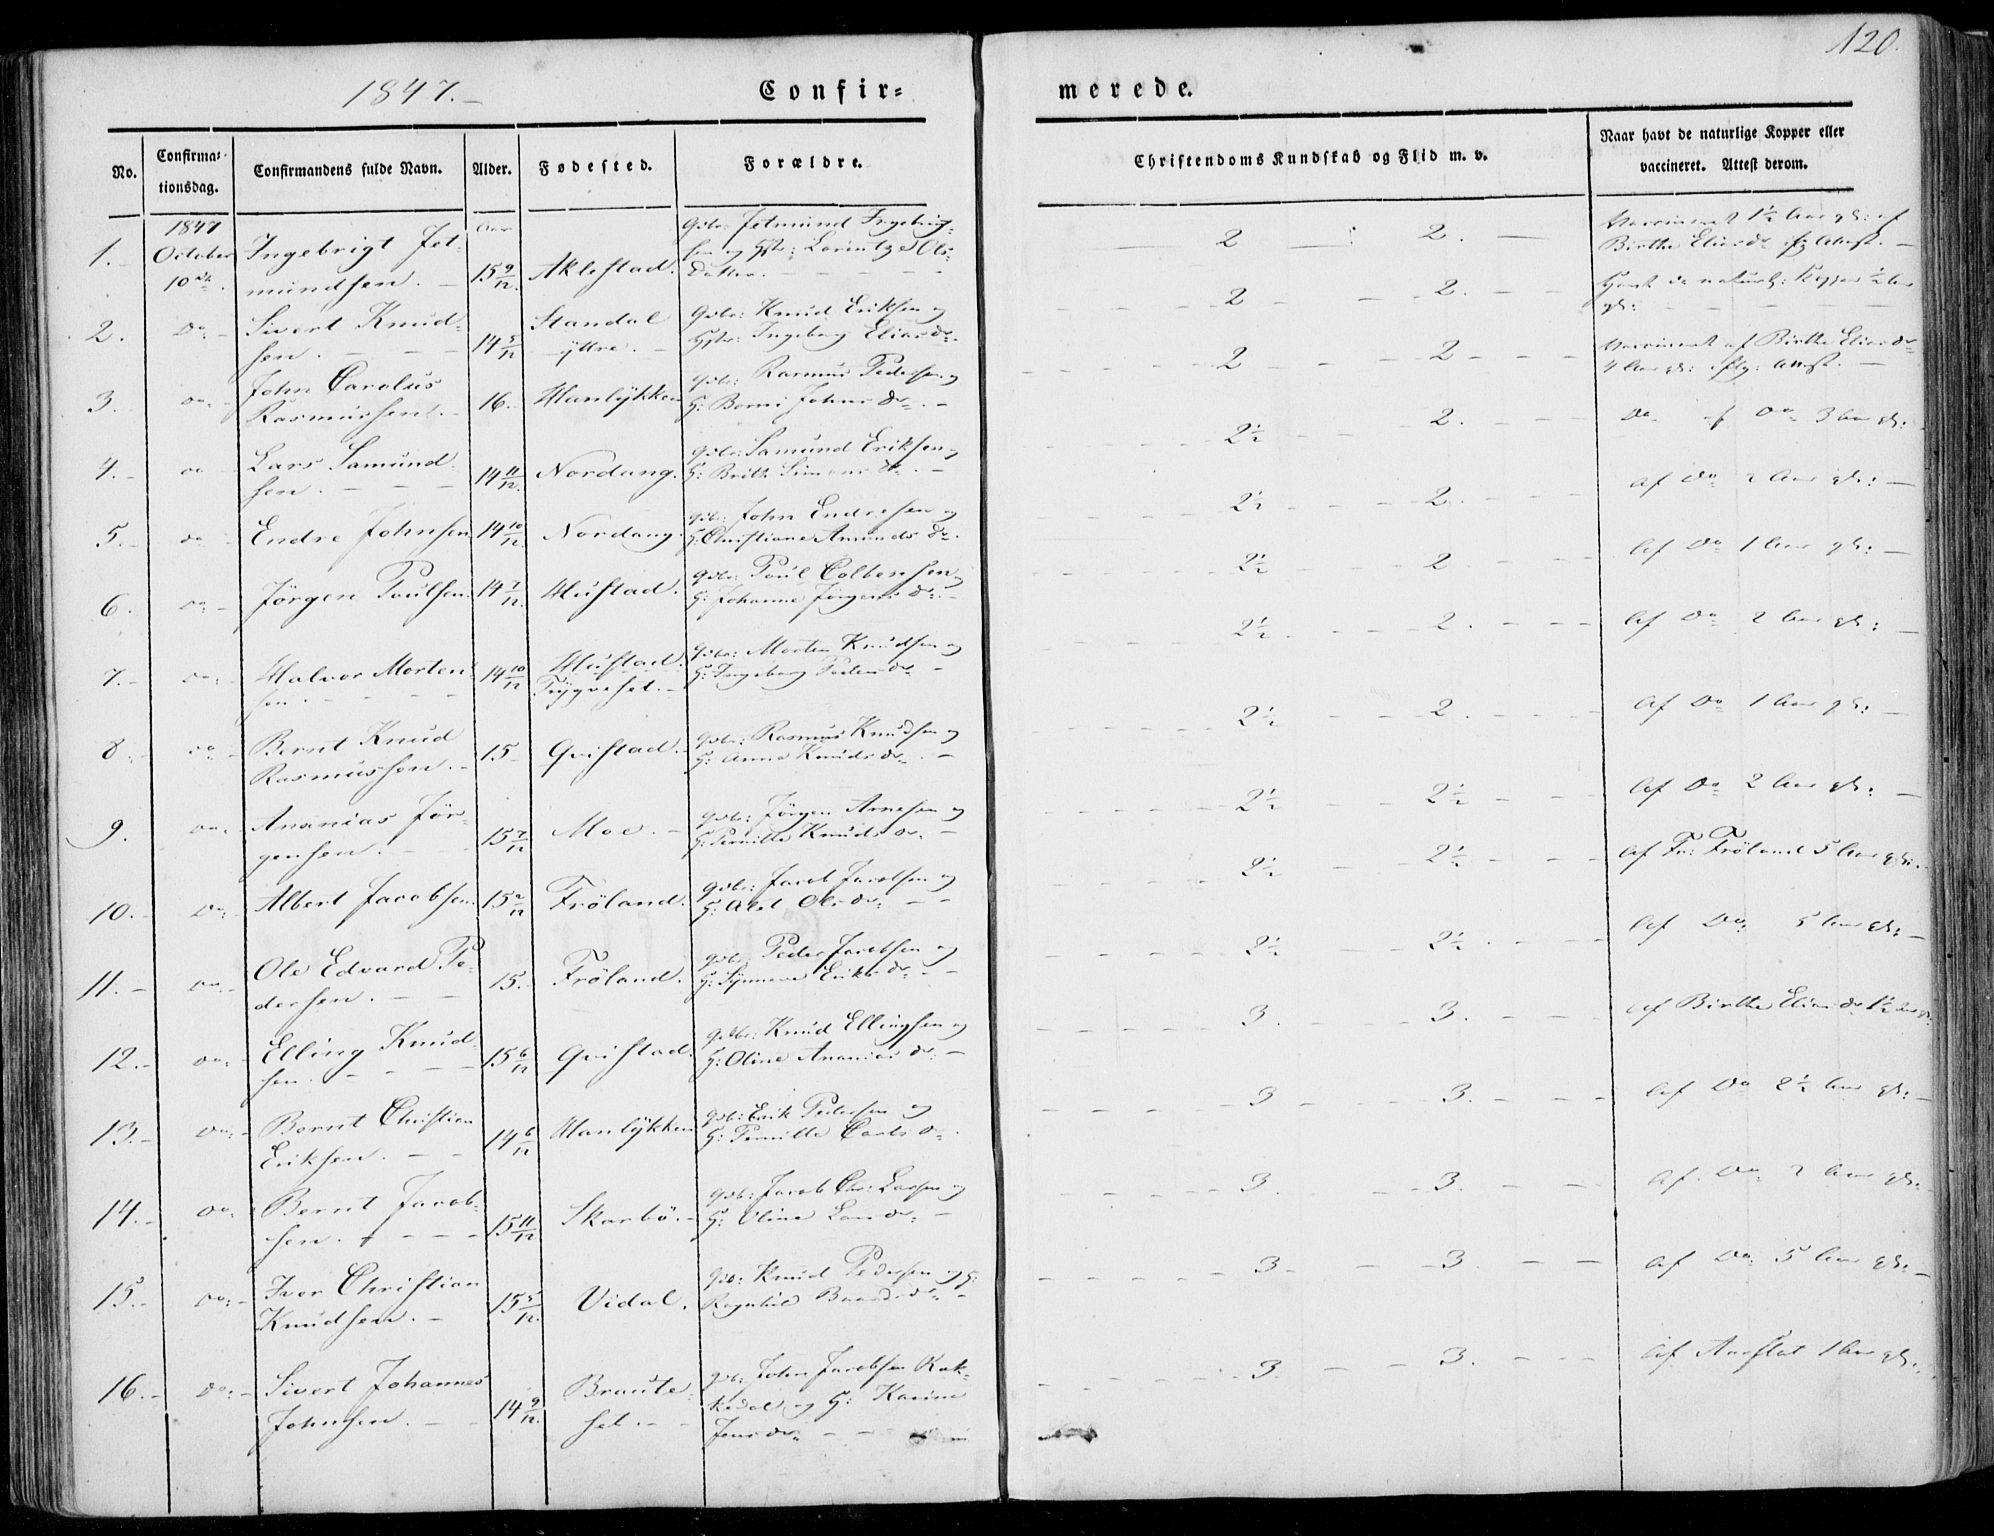 120.
1847.
Confir=
merede.
No.
Confirma=
tionsdag.
Confirmandens fulde Navn.
Alder.
Fødested.
Forældre.
Christendoms Kundskab og Flid m. v.
Naar havt de naturlige Kopper eller
vaccineret. Attest derom.
1847
Aar
Gbr: Jetmund Ingebrigt-
1. October Ingebrigt Jet-
sen og Hstr: Olsdatter.
10de mundsen. 15 9/12. Aklestad.
2 2.
1½ Aar gl: af
Birthe Eliasdr
2. do Sivert Knud-
sen. 14 5/12 Standal
yttre.
Gbr: Knud Eriksen og
Hstr: Ingeborg Eliasdr
2 2.
Havt de naturl: Kopper ½ Aar
gl:
3. do John Carolus
Rasmussen. 16. Manlykken
Gbr: Rasmus Pedersen og
H: Johnsdr.
2 2
Vaccineret af Birthe Eliasdr
4 Aar gl: Attest.
4. do Lars Samund-
sen. 14 11/12. Nordang.
Gbr: Samund Eriksen og
H: Brith Simonsdr.
2½ 2.
Do af Do 3 Aar gl:
5. do Endre Johnsen 14 10/12 Nordang
Gbr: John Endresen og
H: Christiane Amundsdr.
2½ 2.
af Do 2 Aar gl:
6. do Jörgen Poulsen 14 7/12 Hustad.
Gbr: Poul Colbensen og
H: Johanne Jörgensdr.
2½ 2
af Do 1 Aar gl:
7. do Halvor Morten-
sen. 14 10/12 Hustad
Trygveset.
Gbr: Morten Knudsen og
H: Ingeborg Pedersdr
2½. 2.
af Do 2 Aar gl:
8. do Bernt Knud
Rasmussen. 15 Qvistad.
Gbr: Rasmus Knudsen og
H: Anna Knudsdr.
2½ 2.
af Do 1 Aar gl:
9. do Ananias Jör-
gensen. 15 7/12 Moe.
Gbr: Jörgen Arnesen og
H: Pernille Knudsdr.
2½ 2½
af Do 2 Aar gl:
10. Do Albert Jacobsen 15 2/12 Fröland.
Gbr: Jacob Jacobsen og
H: Olsdr.
2½ 2½
af Fr: Fröland 5 Aar gl:
11. do Ole Edvard Pe-
dersen. 15. Fröland.
Gbr: Peder Jacobsen og
H: Synneve Eriksdr
2½ 2½.
af Do 5 Aar gl:
12. do Elling Knud-
sen. 15 6/12 Qvistad.
Gbr: Knud Ellingsen og
H: Oline Ananiasdr.
3. 3.
af Birthe Eliasdr 1½ Aar gl:
13. Do Bernt Christian
Eriksen. 14 6/12 Manlykken
Gbr: Erik Pedersen og
H: Pernille Carlsdr.
3 3.
af Do 2½ Aar gl:
14. do Bernt Jacob-
sen. 15 11/12 Skarbö.
Gbr: Jacob Chr: Larsen og
H: Oline Larsdr.
3. 3.
af Do 2 Aar gl:
15. do Iver Christian
Knudsen. 15 5/12. Vidal.
Gbr: Knud Pedersen og H:
Ragnhild Baardsdr
3 3
af Do 5 Aar gl:
16. do Sivert Johannes
Johnsen. 14 9/12. Braute-
set.
Gbr: John Jacobsen Kak-
kedal og H: Karine
Jensdr
3 3.
af Aarflot 1 Aar gl: